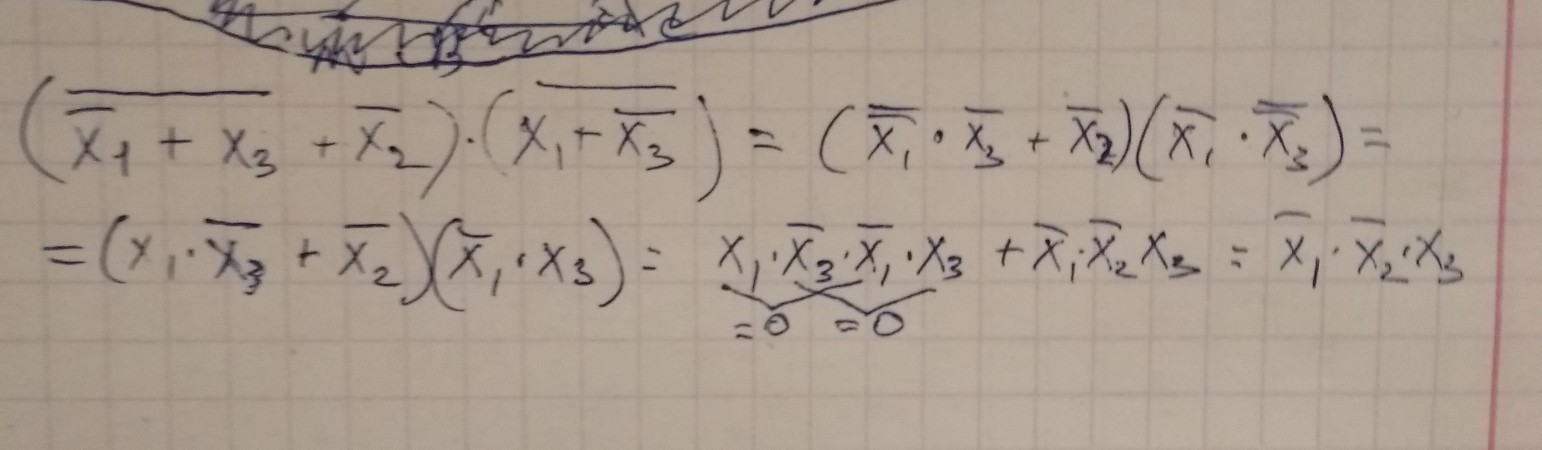 (\overline{\overline{x}_1 + x_3} + \overline{x}_2) \cdot (\overline{x_1 + \overline{x_3}}) = (\overline{\overline{x_1}} \cdot \overline{x_3} + \overline{x_2})(\overline{x_1} \cdot \overline{\overline{x_3}}) =
= (x_1 \cdot \overline{x_3} + \overline{x_2})(\overline{x}_1 \cdot x_3) = x_1 \cdot \overline{x_3} \cdot \overline{x}_1 \cdot x_3 + \overline{x}_1 \cdot \overline{x}_2 x_3 = \overline{x}_1 \cdot \overline{x}_2 \cdot x_3
=0 =0